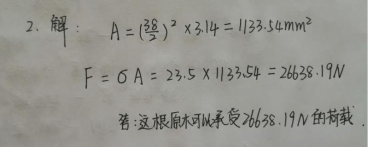 2. 解: A=(38/2)²×3.14=1133.54mm²
F=σA=23.5×1133.54=26638.19N
答:这根原木可以承受26638.19N的荷载.